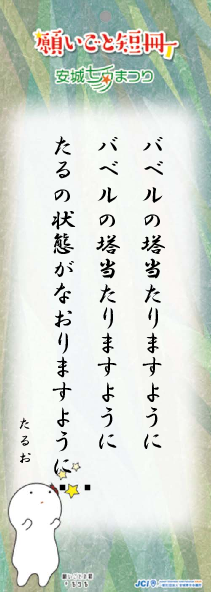 願いごと短冊
安城七夕まつり
バベルの塔当たりますように
バベルの塔当たりますように
たるの状態がなおりますように
たるお
JCI